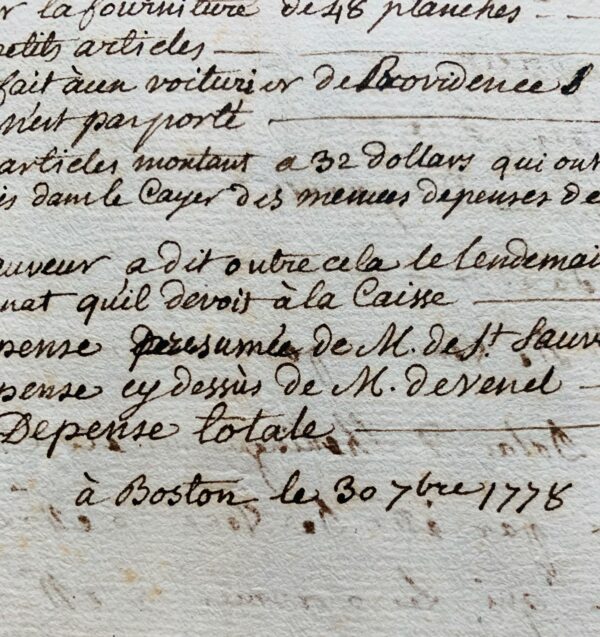 r la fourniture de 48 planches
petits articles
fait à un voiturier de Providence
n'est pas porté
articles montant a 32 dollars qui ont
is dans le Cayer des menues depenses de
auveur a dit outre cela le lendemai
nat qu'il devoit à la Caisse
pense presumée de M. de St Sauv
pense cy dessùs de M. de venel
Depense totale
à Boston le 30 7bre 1778